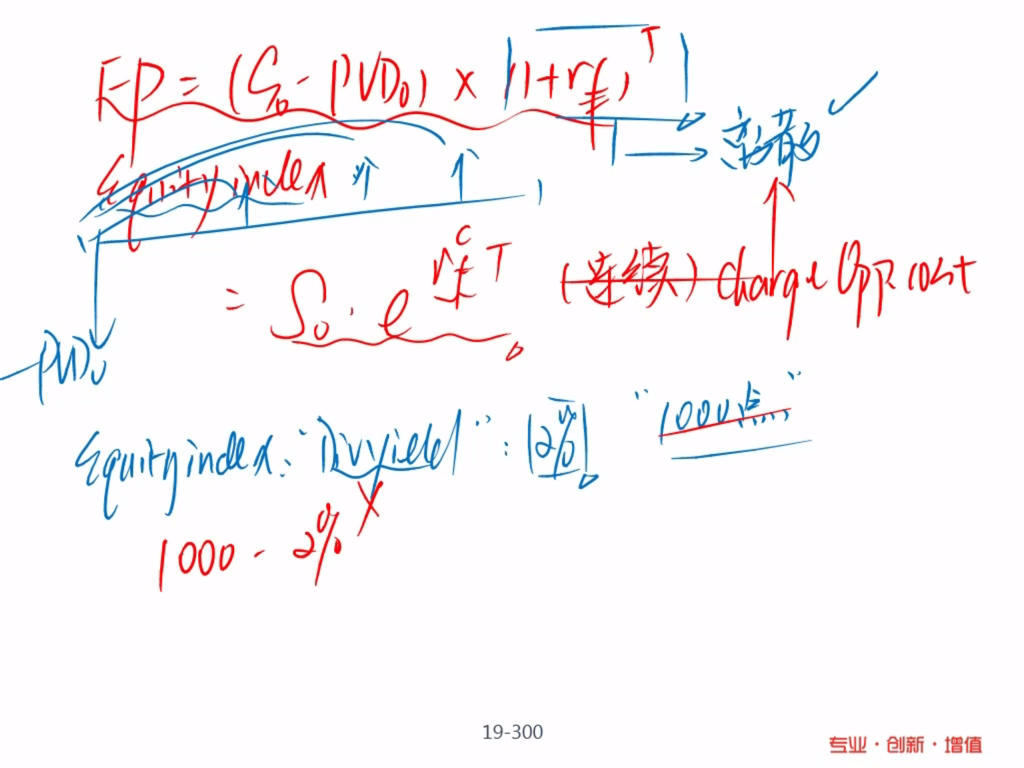 FP = (S₀ - PVD₀) × (1+rf)ᵀ
离散
Equity index
= S₀ · e^(rf^c T) (连续) Charge Opp. cost
PVD₀
Equity index: "Div yield" : 2% "1000点"
1000 - 2%
19-300
专业·创新·增值